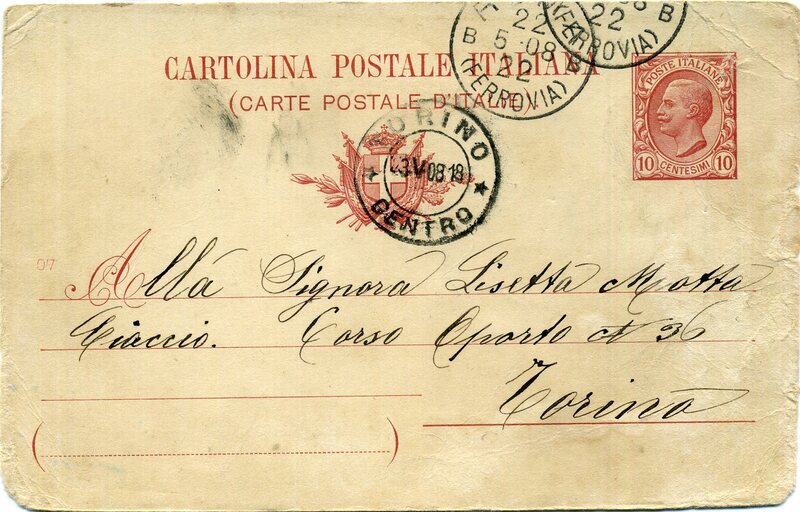 22
B 5 08 B
22
(FERROVIA)
08 B
22
(FERROVIA)
CARTOLINA POSTALE ITALIANA
(CARTE POSTALE D'ITALIE)
POSTE ITALIANE
10 CENTESIMI 10
TORINO
3 V 08 18
★ CENTRO ★
07
Allá Signora Lisetta Motta
Ciaccio. Corso Oporto N 36
Torino